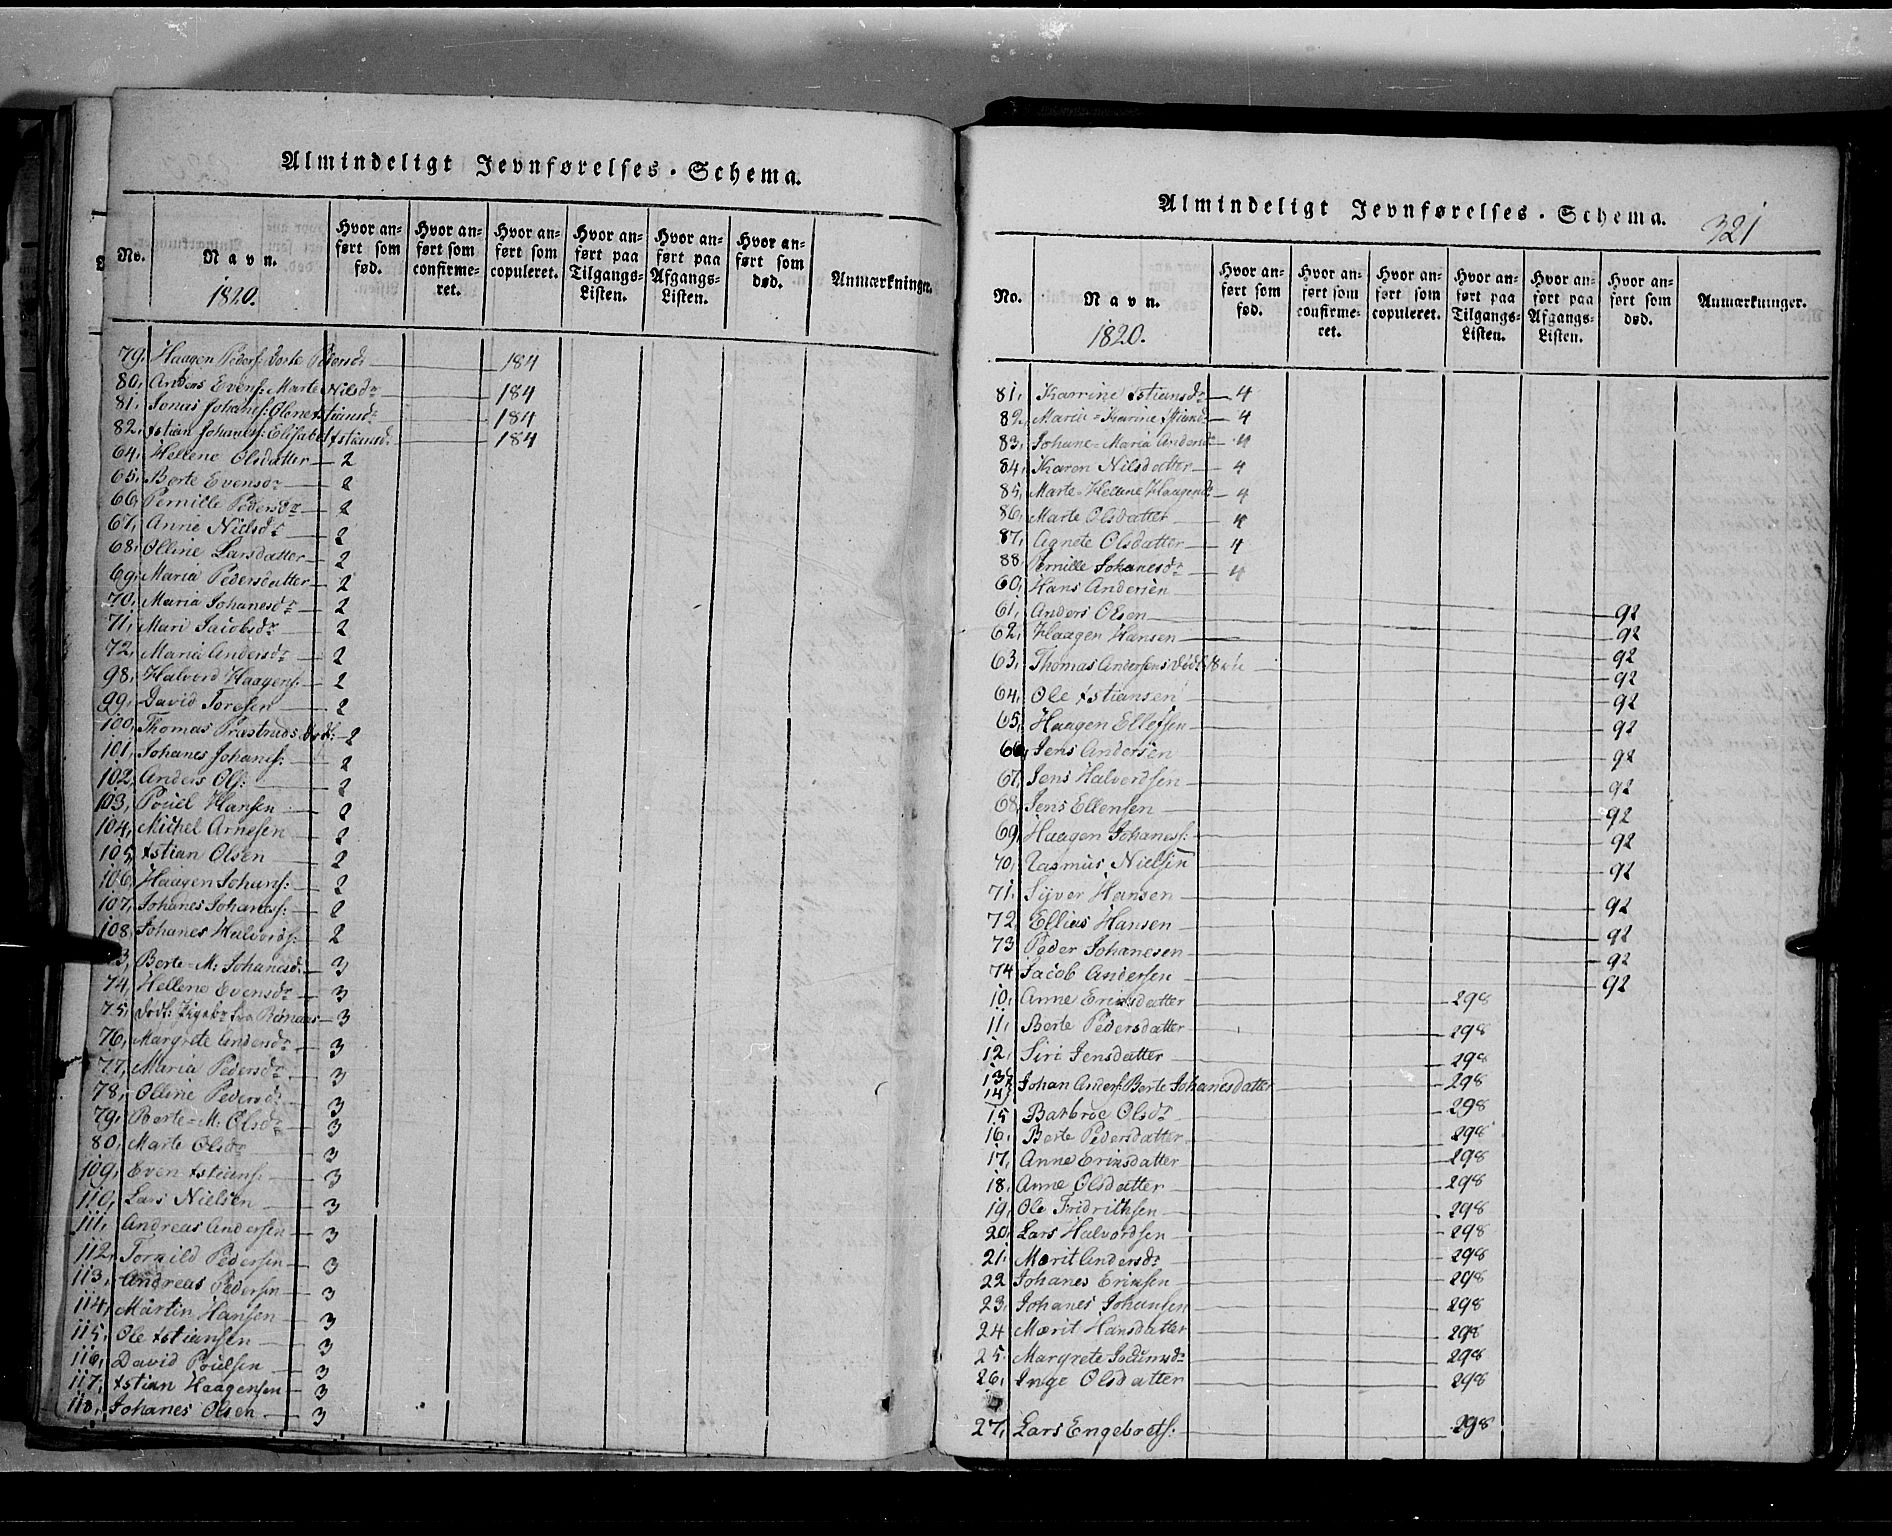 Almindeligt Jevnførelses-Schema.
No. Navn. 1820. Hvor anført som fød. Hvor anført som confirmeret. Hvor anført som copuleret. Hvor anført paa Tilgangs-Listen. Hvor anført paa Afgangs-Listen. Hvor anført som død. Anmærkninger.
79, Haagen Peders: Dorte Pedersdr 184
80, Anders Evens: Marte Nilsdr 184
81, Jonas Johans: Olene Xstiansdr 184
82, Xstian Johanes: Elisabet Xstiansdr 184
64, Hellene Olsdatter 2
65, Berte Evensdr 2
66, Pernille Pedersdr 2
67, Anne Nielsdr 2
68, Olline Larsdatter 2
69, Maria Pedersdatter 2
70, Maria Johanesdr 2
71, Mari Jacobsdr 2
72, Maria Andersdr 2
98, Halvord Haagens: 2
99, David Toresen 2
100, Thomas Præstruds 2
101, Johanes Johans: 2
102, Anders Ols: 2
103, Pouel Hansen 2
104, Michel Arnesen 2
105, Xstian Olsen 2
106, Haagen Johans: 2
107, Johanes Johanes: 2
108, Johanes Halvords: 2
73, Berte-M: Johanesdr 3
74, Hellene Evensdr 3
75, 3
76, Margrete Andersdr 3
77, Maria Pedersdr 3
78, Olline Pedersdr 3
79, Berte-M: Olsdr 3
80, Marte Olsdr 3
109, Even Xstians: 3
110, Lars Nielsen 3
111, Andreas Andersen 3
112, Torkild Pedersen 3
113, Andreas Pedersen 3
114, Martin Hansen 3
115, Ole Xstiansen 3
116, David Poulsen 3
117, Xstian Haagensen 3
118, Johanes Olsen 3
Almindeligt Jevnførelses-Schema. 321
No. Navn. 1820. Hvor anført som fød. Hvor anført som confirmeret. Hvor anført som copuleret. Hvor anført paa Tilgangs-Listen. Hvor anført paa Afgangs-Listen. Hvor anført som død. Anmærkninger.
81, Karrine Xstiansdr 4
82, Maria-Karine Xstiansdr 4
83, Johane-Maria Andersdr 4
84, Karen Nilsdatter 4
85, Marte-Hellene Haagensdr 4
86, Marte Olsdatter 4
87, Agnete Olsdatter 4
88 Pernille Johanesdr 4
60, Hans Andersen 92
61, Anders Olsen 92
62, Haagen Hansen 92
63, Thomas Andersens 92
64, Ole Xstiansen 92
65, Haagen Ellefsen 92
66, Jens Andersen 92
67, Jens Halvordsen 92
68, Jens Ellensen 92
69, Haagen Johanes: 92
70, Rasmus Nielsen 92
71, Syver Hansen 92
72, Ellias Hansen 92
73 Peder Johanesen 92
74 Jacob Andersen 92
10, Anne Eriksdatter 298
11, Berte Pedersdatter 298
12, Siri Jensdatter 298
13, 14, Johan Anders: Berte Johanesdatter 298
15 Barbroe Olsdr 298
16, Berte Pedersdatter 298
17, Anne Eriksdatter 298
18, Anne Olsdatter 298
19, Ole Fridrichsen 298
20, Lars Halvordsen 298
21, Marit Andersdr 298
22 Johanes Eriksen 298
23, Johanes Johansen 298
24 Marit Hansdatter 298
25, Margrete 298
26, Inge Olsdatter 298
27, Lars Engebrets: 298